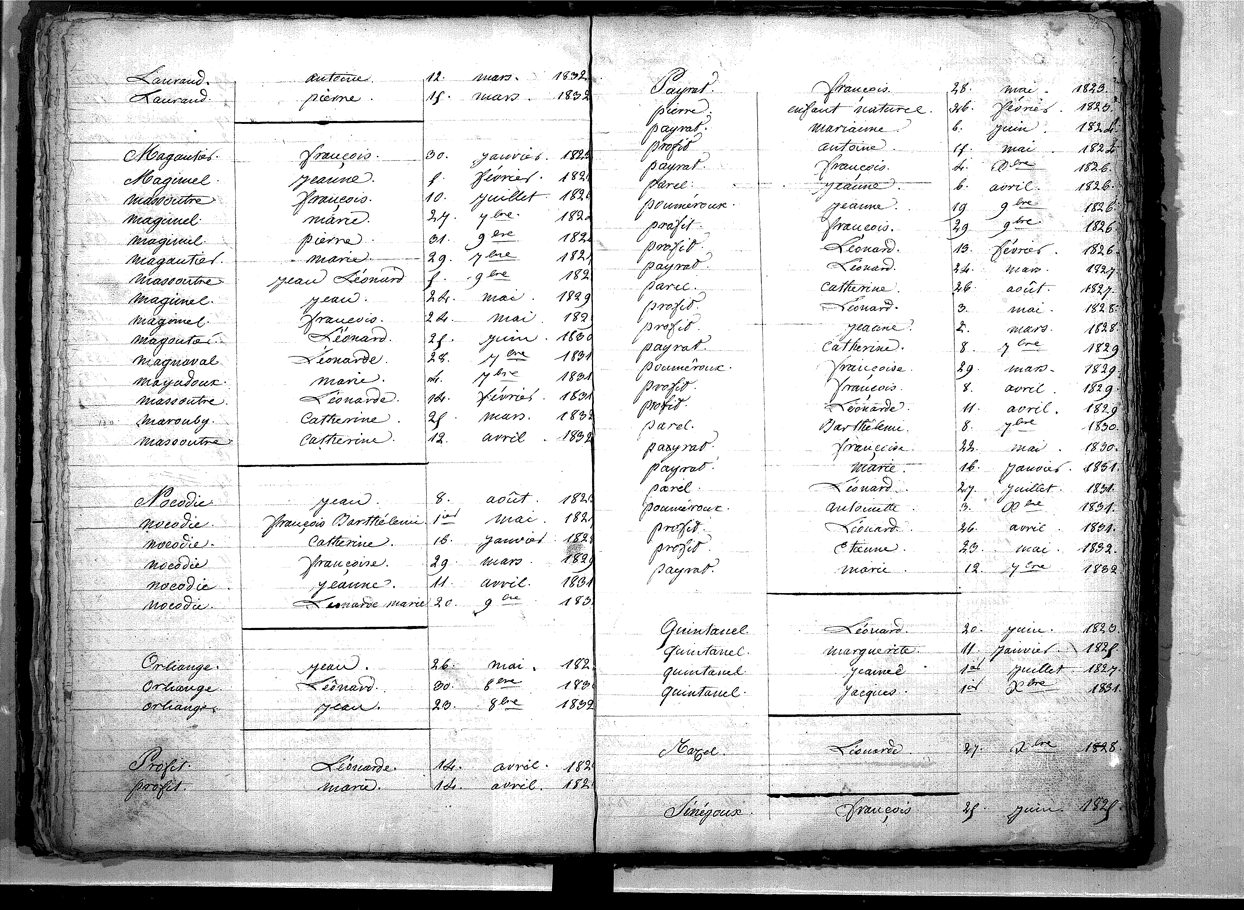 Laurand. antoine. 12. mars. 1832
Laurand. pierre. 15. mars. 1832
Magautier. françois. 30. janvier. 182
Magimel. jeanne. 5. février. 182
massoutre. françois. 10. juillet. 182
magimel. marie. 27. 7bre 182
magimel. pierre. 31. 9bre 182
magautier. marie. 29. 7bre 182
massoutre jean Léonard 5. 9bre 182
magimel. jean. 24. mai. 1829
magimel. françois. 24. mai. 182
magoutier. Léonard. 25. juin. 1830
magnaval Léonarde. 28. 7bre 1831
mayadoux. marie. 4. 7bre. 1831
massoutre. Léonarde. 14. février. 1831
marouby. Catherine. 25. mars. 1832
massoutre Catherine. 12. avril. 1832
Nocodie jean. 8. août. 182
nocodie. françois Barthélemi. 1ier mai. 182
nocodie. Catherine. 16. janvier. 182
nocodie françoise. 29. mars. 1829
nocodie. jeanne. 11. avril. 1831
nocodie. Léonarde marie 20. 9bre 183
Orliange. jean. 26. mai. 182
Orliange Léonard. 30. 8bre 183
orliange. jean. 23. 8bre 1832
Profit. Léonarde. 14. avril. 182
profit. marie. 14. avril. 182
Payrat. françois. 28. mai. 1823.
pierre. enfant naturel. 26. février. 1823.
payrat. marianne 6. juin. 1824.
profit antoine. 15. mai. 1824
payrat. françois. 4. Xbre 1826.
parel. jeanne. 6. avril. 1826.
pouméroux. jeanne. 19. 9bre 1826.
profit. françois. 29. 9bre 1826
profit. Léonard. 13. février. 1826.
payrat. Léonard. 24. mars. 1827.
parel. Catherine. 26. août. 1827.
profit. Léonard. 3. mai. 1828.
profit. jeanne. 2. mars. 1828.
payrat. Catherine. 8. 7bre 1829
pouméroux. françoise. 29. mars. 1829.
profit. françois. 8. avril. 1829.
profit. Léonarde 11. avril. 1829
parel. Barthélemi. 8. 7bre 1830.
payrat. françoise. 22. mai. 1830.
payrat. marie. 16. janvier. 1831.
parel. Léonard. 27. juillet. 1831.
pouméroux. antoinette 3. Xbre 1831.
profit. Léonard. 26. avril. 1831.
profit. etienne. 23. mai. 1832.
payrat. marie. 12. 7bre 1832
Quintanel Léonard. 20. juin. 1823.
quintanel. marguerite. 11. janvier. 1825.
quintanel jeanne 1ier juillet. 1827.
quintanel. jacques. 1ier Xbre 1831.
Razel. Léonarde. 27. Xbre 1828
Sénégoux. françois 25. juin. 1825.